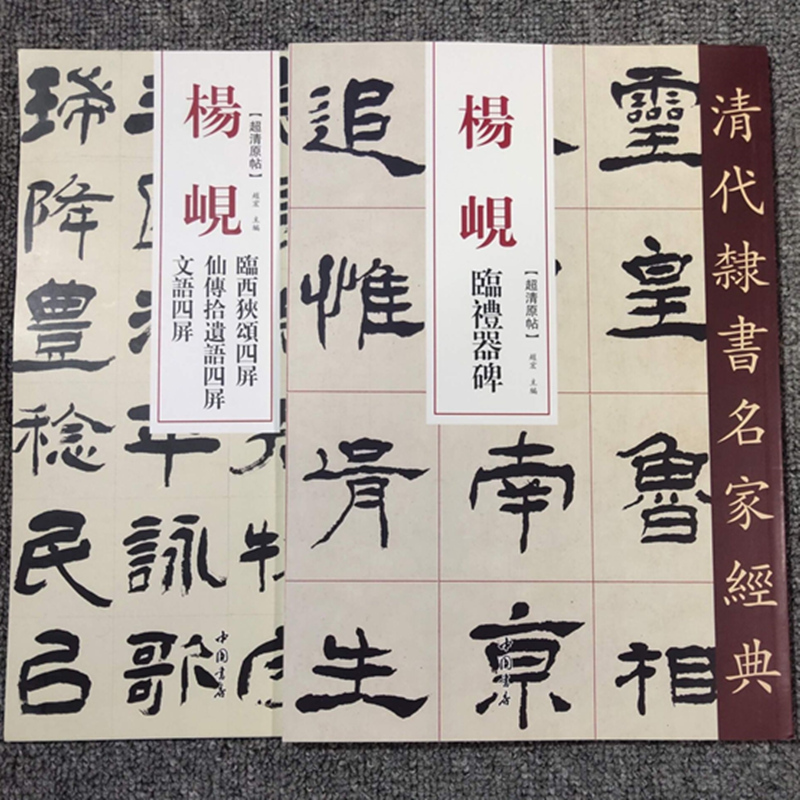 清代隸書名家經典
楊峴
臨禮器碑
【超清原帖】
趙宏 主編
靈皇魯相
南京
追惟胥生
中国书店
楊峴
【超清原帖】
趙宏 主編
臨西狹頌四屏
仙傳拾遺語四屏
文語四屏
年詠歌
稀降豐稔民以
中国书店